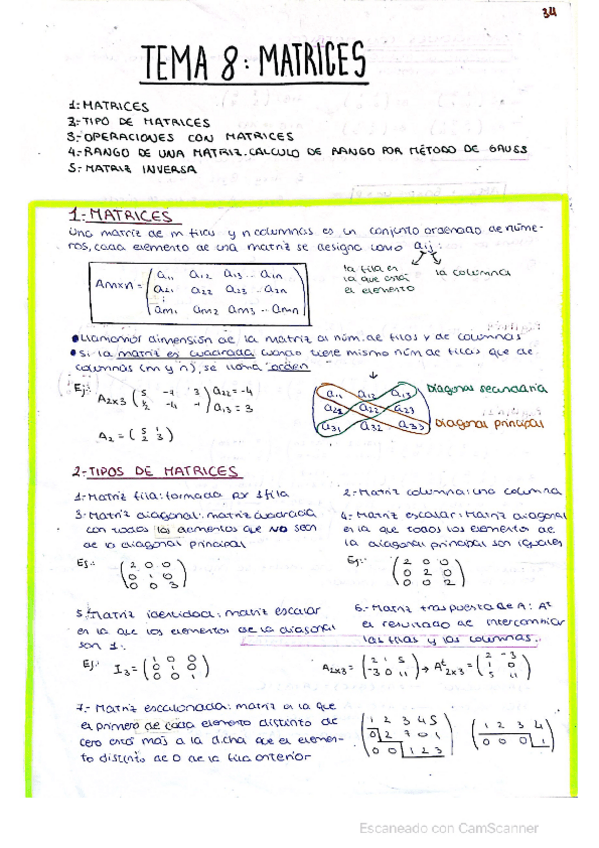 34
TEMA 8: MATRICES
1.- MATRICES
2.- TIPO DE MATRICES
3.- OPERACIONES CON MATRICES
4.- RANGO DE UNA MATRIZ. CALCULO DE RANGO POR MÉTODO DE GAUSS
5.- MATRIZ INVERSA
1.- MATRICES
Una matriz de m filas y n columnas es un conjunto ordenado de núme-
ros, cada elemento de una matriz se designa como aij:
la fila en
la que está
el elemento
la columna
Amxn = ( a11 a12 a13 .. a1n
a21 a22 a23 .. a2n
am1 am2 am3 .. amn )
• Llamamos dimensión de la matriz al núm. de filas y de columnas
• Si la matriz es cuadrada cuando tiene mismo núm de filas que de
columnas (m y n), se llama orden
Ej: A2x3 ( 5 -7 3
1/2 -4 -1 ) a22 = -4
a13 = 3
A2 = ( 5 1
2 3 )
a11 a12 a13
a21 a22 a23
a31 a32 a33
Diagonal secundaria
Diagonal principal
2.- TIPOS DE MATRICES
1.- Matriz fila: formada por 1 fila
2.- Matriz columna: una columna
3.- Matriz diagonal: matriz cuadrada
con todos los elementos que NO sean
de la diagonal principal
Ej:- ( 2 0 0
0 1 0
0 0 3 )
4.- Matriz escalar: Matriz diagonal
en la que todos los elementos de
la diagonal principal son iguales
Ej:- ( 2 0 0
0 2 0
0 0 2 )
5.- Matriz identidad: matriz escalar
en la que los elementos de la diagonal
son 1.
Ej:- I3 = ( 1 0 0
0 1 0
0 0 1 )
6.- Matriz traspuesta de A: At
el resultado de intercambiar
las filas y las columnas.
A2x3 = ( 2 1 5
-3 0 11 ) → At2x3 = ( 2 -3
1 0
5 11 )
7.- Matriz escalonada: matriz en la que
el primero de cada elemento distinto de
cero está más a la dicha que el elemen-
to distinto de 0 de la fila anterior
( 1 2 3 4 5
0 2 7 0 1
0 0 1 2 3 )
( 1 2 3 4
0 0 0 1 )
Escaneado con CamScanner